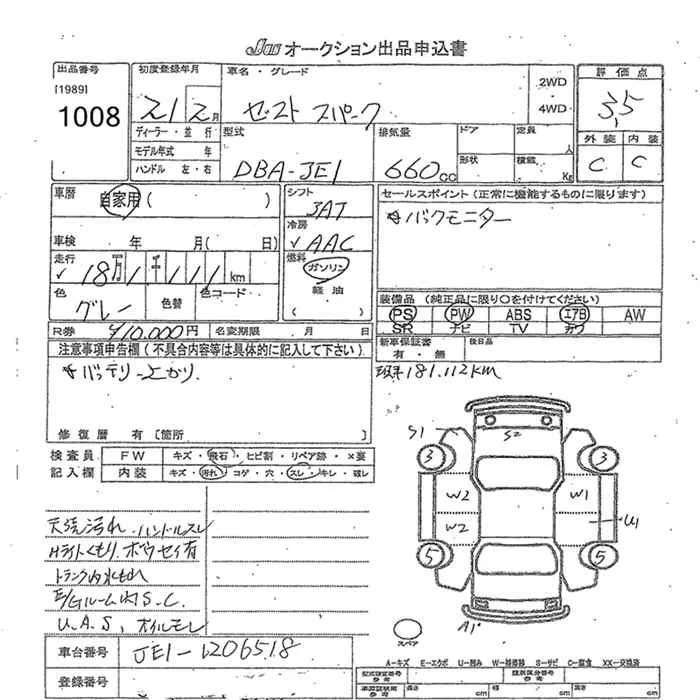 JU オークション出品申込書
出品番号
[1989]
1008
初度登録年月
21 2月
ディーラー・並行
モデル年式 年
ハンドル 左・右
車名・グレード
ゼスト スパーク
2WD
4WD
評価点
3.5
外装 内装
C C
型式
DBA-JE1
排気量
660cc
ドア
形状
定員 人
積載 Kg
車歴
自家用 ( )
車検 年 月( 日)
走行
✓ 18万 1千 1 1 1 km
色
グレー
色替
色コード
R券 ¥10,000円
名変期限 月 日
シフト
3AT
冷房
✓ AAC
燃料
ガソリン
軽油
( )
セールスポイント (正常に機能するものに限ります)
*バックモニター
装備品 (純正品に限り○を付けてください)
PS PW ABS エアB AW
SR ナビ TV カワ
新車保証書
有・無
後日品
注意事項申告欄 (不具合内容等は具体的に記入して下さい)
*バッテリー上がり.
修復歴 有 [箇所
181,112km
検査員 FW キズ・飛石・ヒビ割・リペア跡・×要
記入欄 内装 キズ・汚れ・コゲ・穴・スレ・キレ・破レ
天張汚れ.ハンドルスレ
Hライトくもり.ボウセイ有
トランク内水もれ
E/Gルーム内S.C.
U.A.S, オイルモレ
S1
S2
3
3
W2
W1
W2
U1
5
5
A1
スペア
車台番号 JE1-1206518
登録番号
A-キズ E-エクボ U-凹み W-補修跡 S-サビ C-腐食 XX-交換済
型式指定番号
参考
類別区分番号
参考
長さ cm
cm
cm